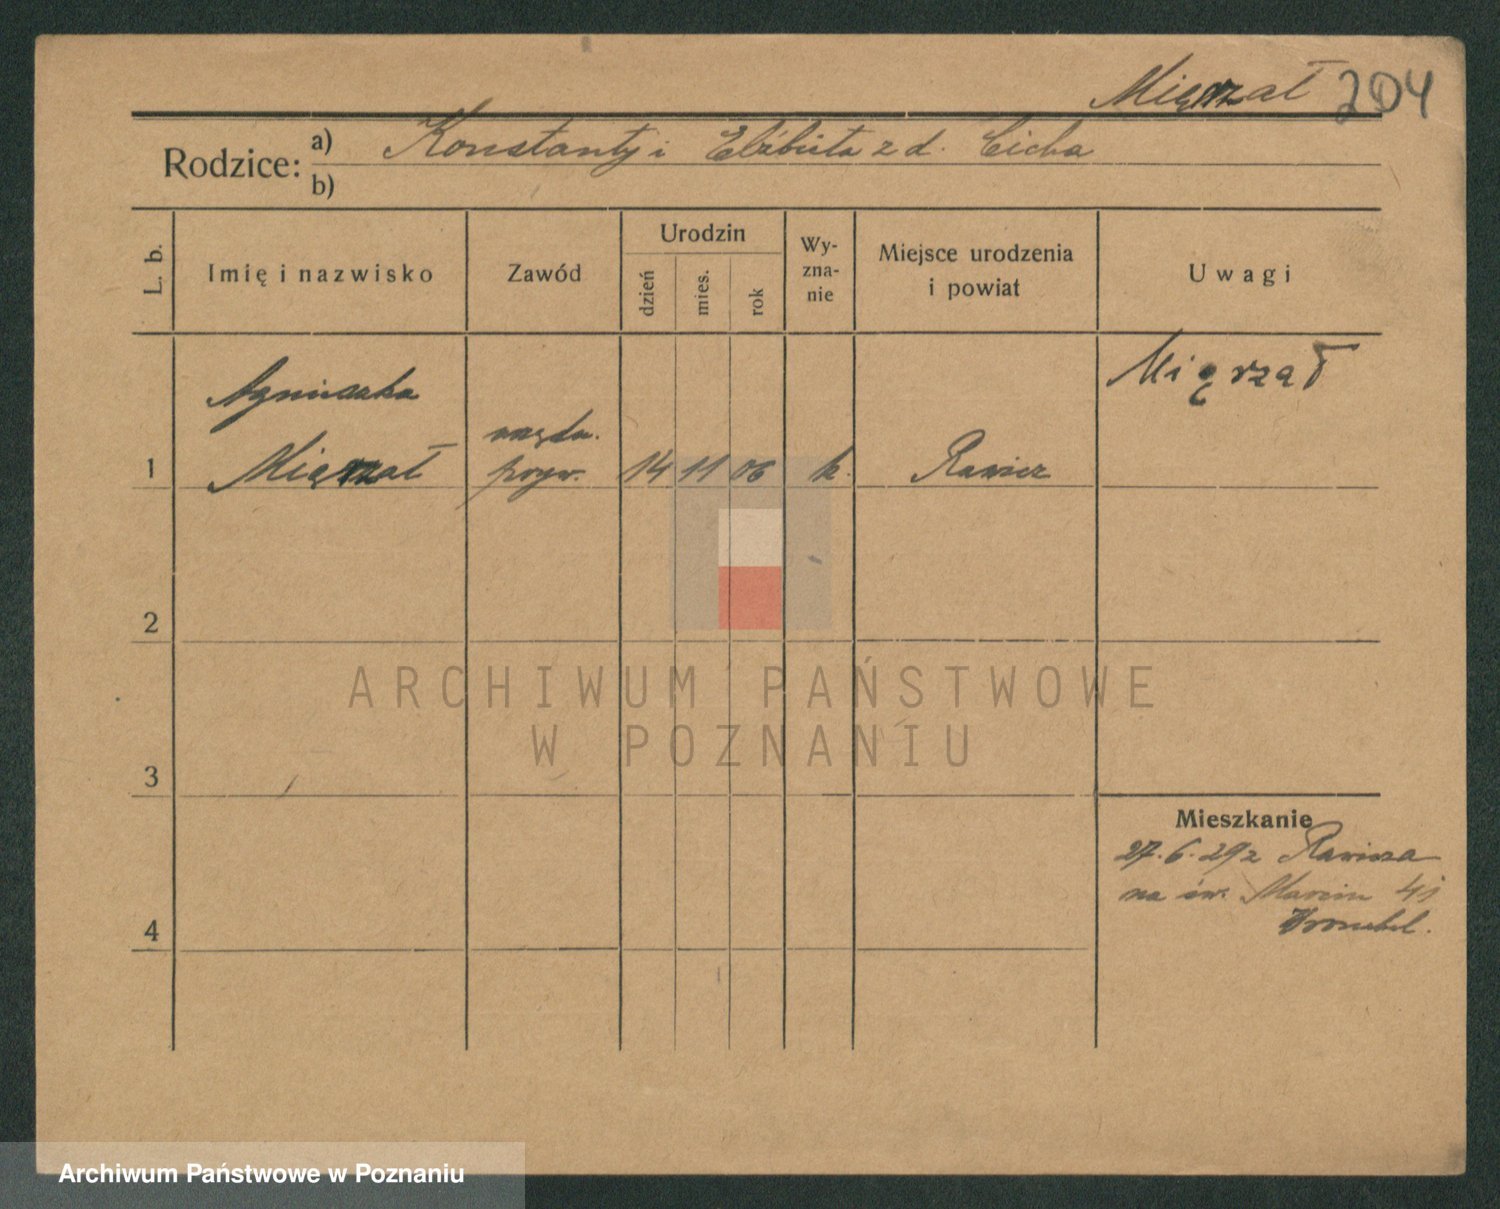 Mięrzał 204
Rodzice: a) Konstanty i Elżbieta z d. Cicha
b)
L. b.
Imię i nazwisko
Zawód
Urodzin
dzień
mies.
rok
Wy-
zna-
nie
Miejsce urodzenia
i powiat
Uwagi
Agnieszka
Mięrzał
1
pryw.
14 11 06
k.
Rawicz
Mięrzał
2
3
4
Mieszkanie
27.6.29 z Rawicza
na św. Marcin 41
ARCHIWUM PAŃSTWOWE
W POZNANIU
Archiwum Państwowe w Poznaniu